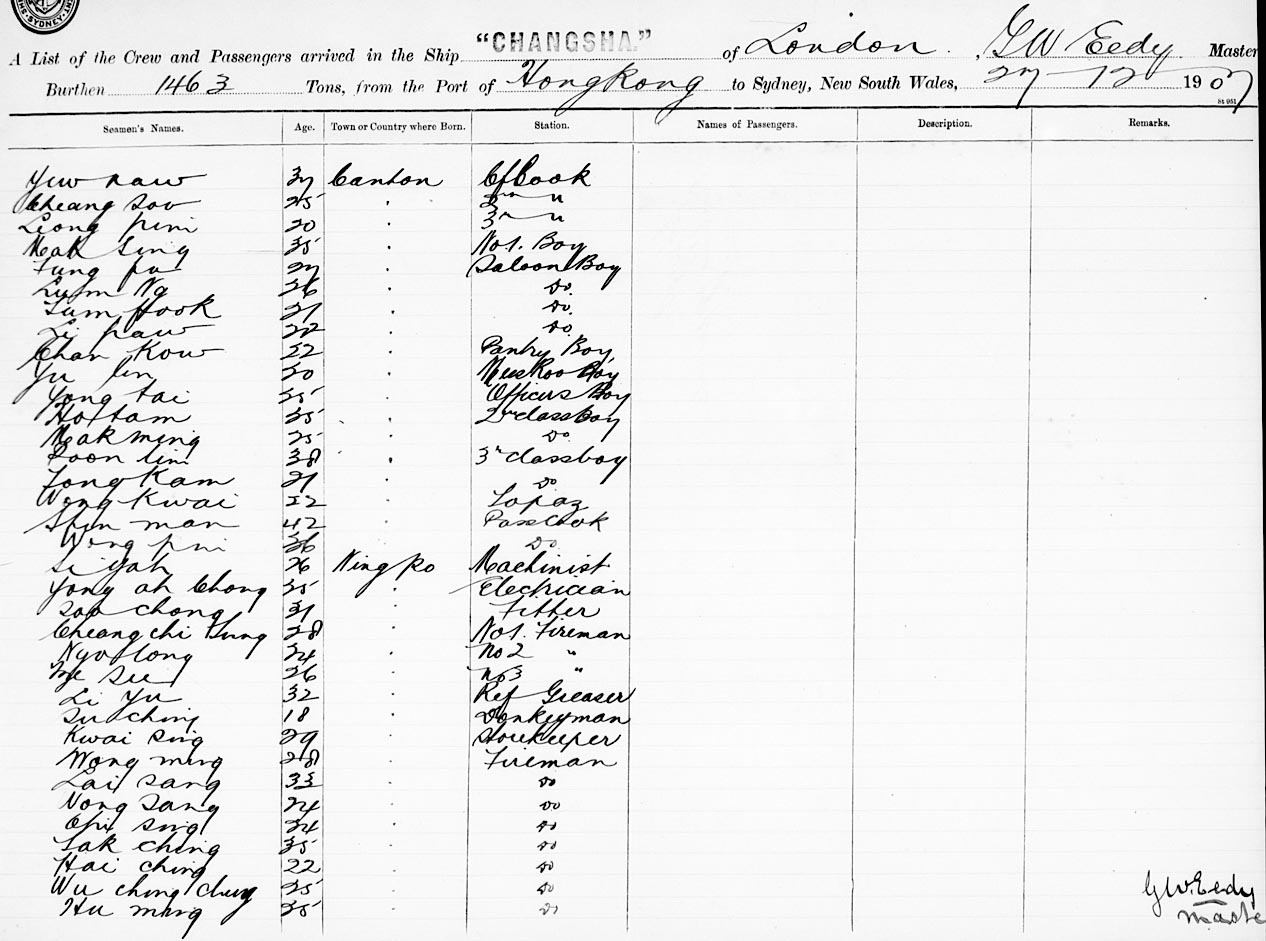 SYDNEY
A List of the Crew and Passengers arrived in the Ship "CHANGSHA." of London, G W Eedy Master
Burthen 1463 Tons, from the Port of Hong Kong to Sydney, New South Wales, 27-12-1907
St 951
Seamen's Names. Age. Town or Country where Born. Station. Names of Passengers. Description. Remarks.
Yuw 37 Canton Cf Cook
Cheang Soo 25 " 2nd "
Leong 20 " 3rd "
Mak Sing 35 " No 1. Boy
Fung 27 " Saloon Boy
Lum Na 26 " Do.
Lum Hook 21 " Do.
Li 22 " Do.
Chan Kow 22 " Pantry Boy
Yu lin 20 " Boy
Yong tai 25 " Officers Boy
Ho tam 35 " 2nd class Boy
Mak ming 25 " Do
Poon lim 38 " 3rd class boy
Tong Kam 21 " Do
Wong Kwai 22 " Lopaz
man 42 " Pass Cook
Wong 36 " Do
Li Yah 26 Ningpo Machinist
Yong ah Chong 35 " Electrician
Soo chong 31 " Fitter
Cheang chi Sung 28 " No 1. Fireman
Nyo long 24 " No 2 "
See 26 " No 3 "
Li Yu 32 " Ref Greaser
Su ching 18 " Donkeyman
Kwai Sing 29 " Storekeeper
Wong ming 28 " Fireman
Lai Sang 33 " Do
Vong Sang 24 " Do
Sing 24 " Do
Lak ching 35 " Do
Hai ching 22 " Do
Wu ching chung 25 " Do
Hu ming 35 " Do
G W. Eedy
Maste